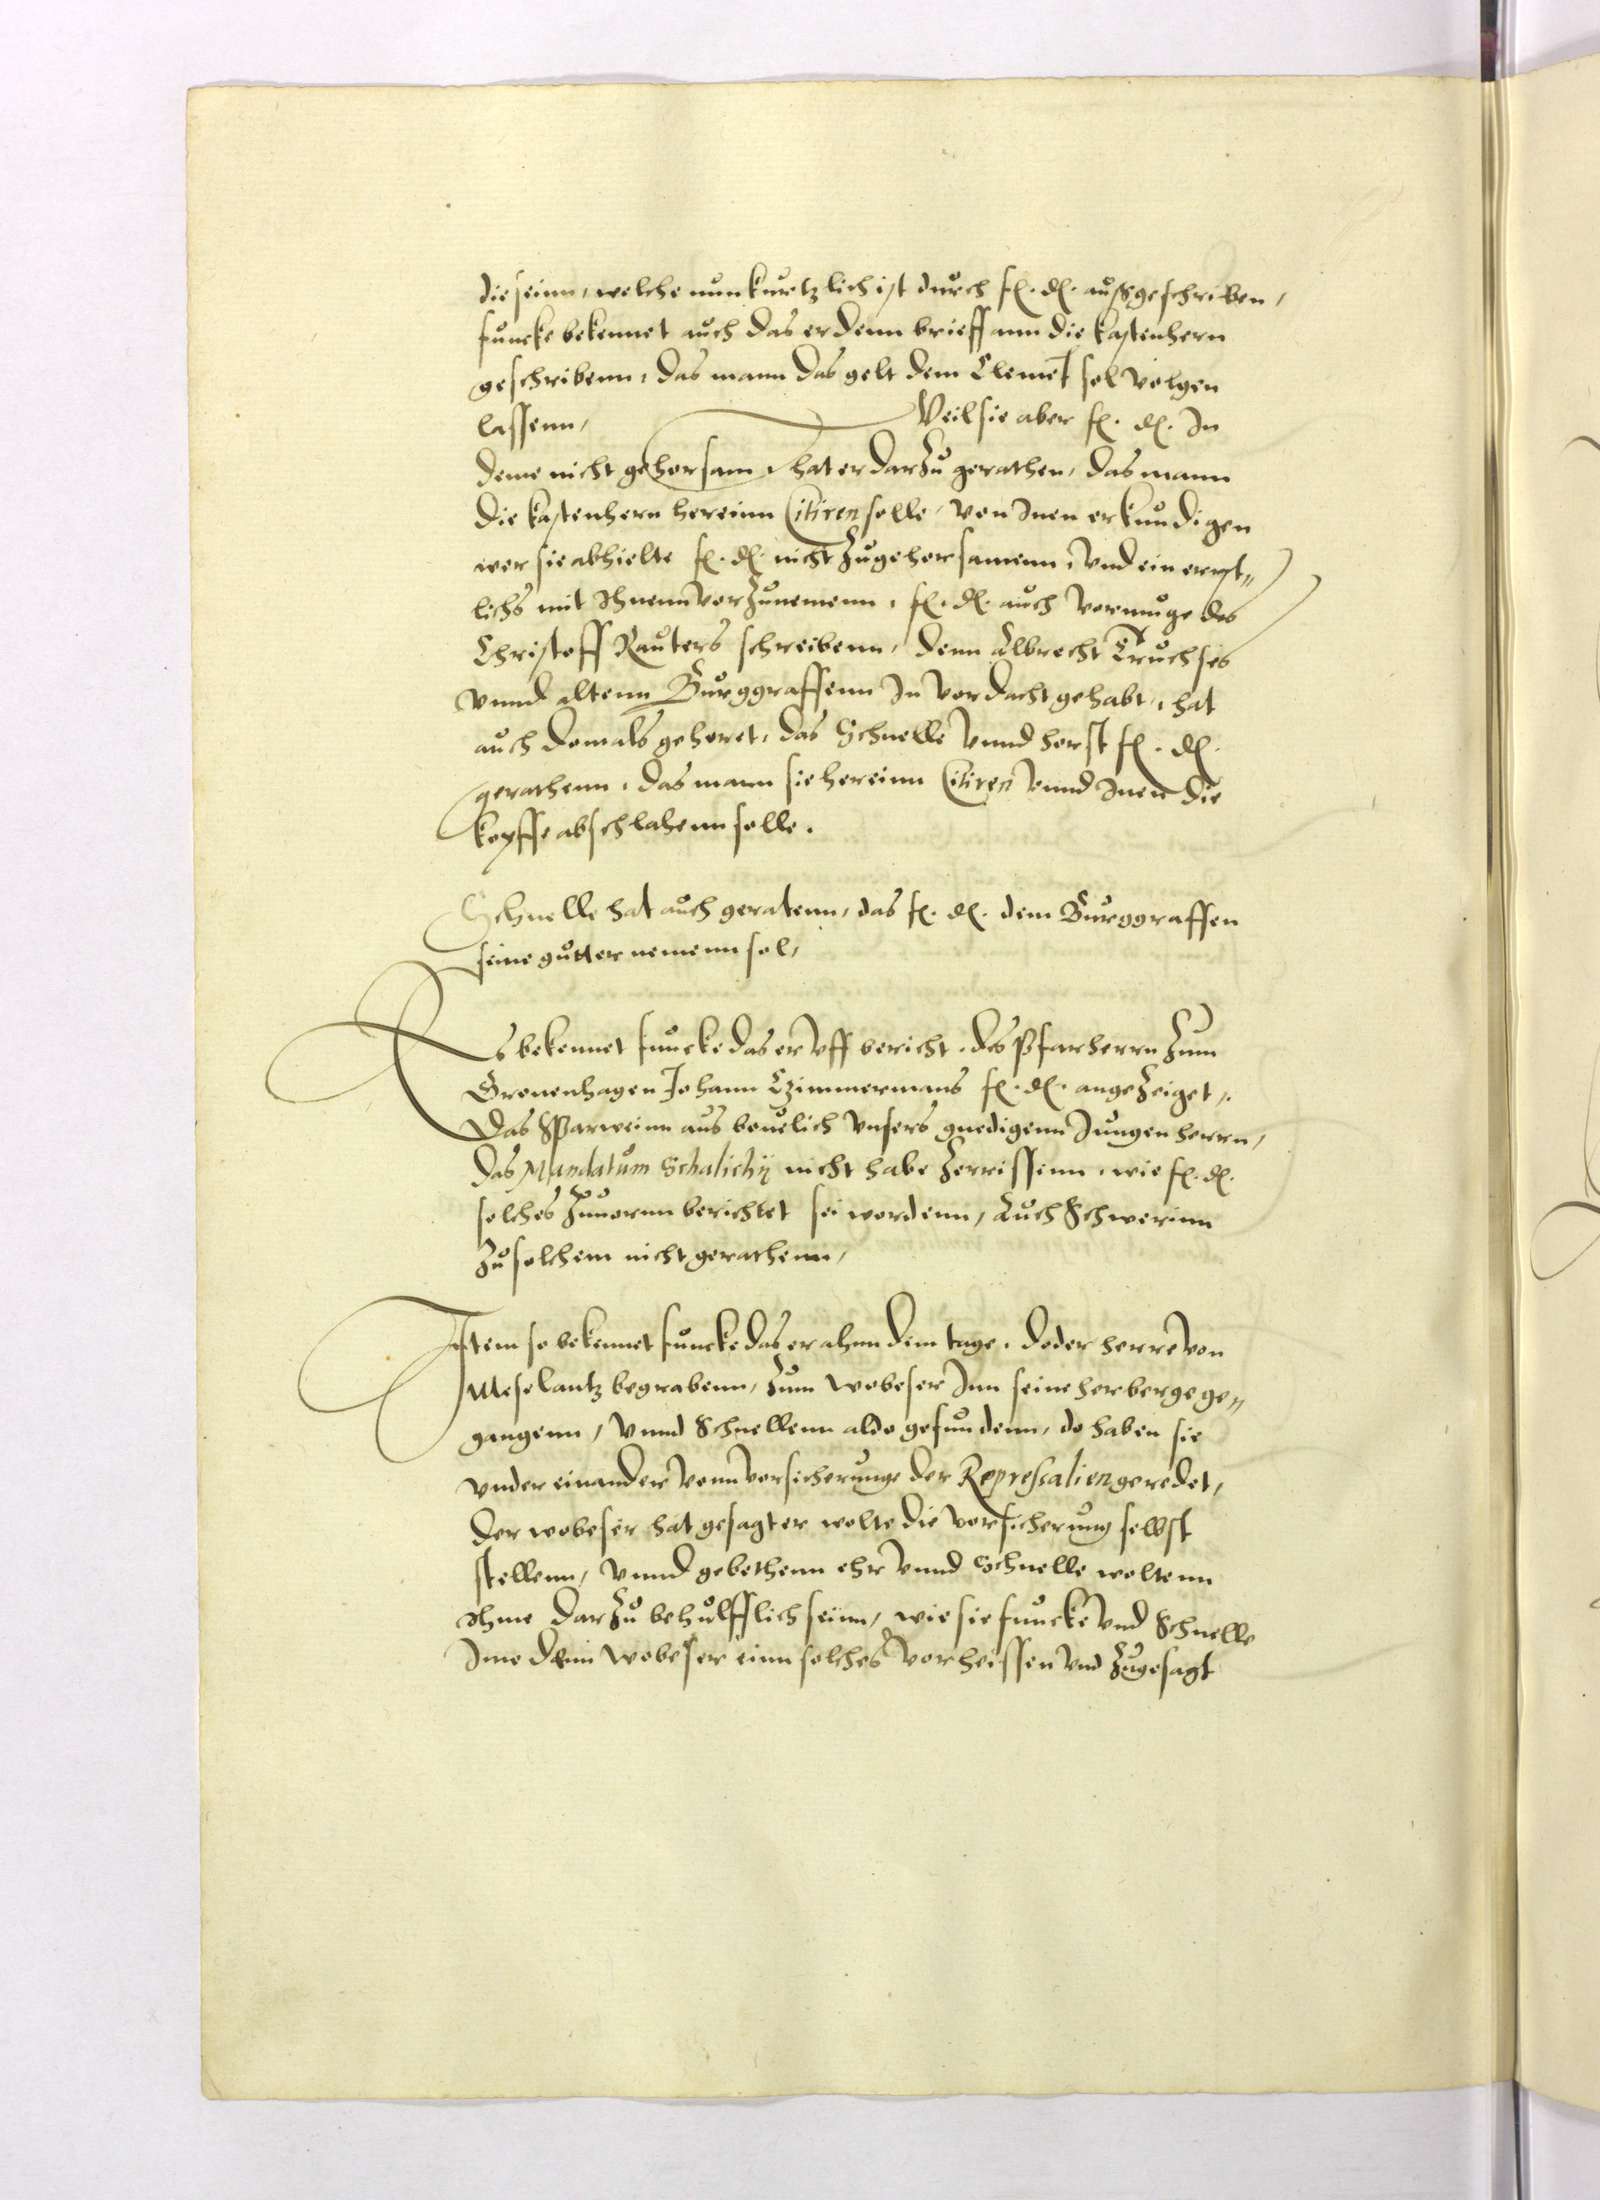 die seinn, welche nun kurtzlich ist durch f. d. außgeschriben,
funcke bekennet auch das er denn brieff ann die kastenhern
geschribenn, das mann das gelt dem Clement sol volgen
lassenn, Weil sie aber f. d. In
deme nicht gehorsam, hat er darzu gerathen, das mann
die kastenhern hereinn Citiren solle, von Inen erkundigen
wer sie abhielte f. d. nicht zugehorsamenn, vnd ein ernst„
lichs mit Ihnenn vorzunemenn, f. d. auch vermuge des
Christoff Rauters schreibenn, denn Albrecht Truchses
vnnd altenn Burggraffenn In vordacht gehabt, hat
auch domals gehoret, das Schnelle vnnd horst f. d.
gerathenn, das mann sie hereinn Citiren vnnd Inen die
kopffe abschlahenn solle.
Schnelle hat auch geratenn, das f. d. dem Burggraffen
seine gutter nemenn sol,
Es bekennet funcke das er vff bericht des Pfarherrn zum
Gronenhagen Johann Tzimmermans f. d. angezeiget,
Das Sparweinn aus beuelich vnsers gnedigenn Jungen herrn,
das Mandatum Schalichij nicht habe zerrissenn, wie f. d.
solches zuuornn berichtet sei wordenn, Auch Schwerinn
zu solchem nicht gerathenn,
Item so bekennet funcke das er ahnn dem tage, do der herre von
Meselantz begrabenn, zum Wobeser Inn seine herberge ge„
gangenn, vnnd Schnellenn aldo gefundenn, do haben sie
vnder einander vonn vorsicherunge der Repressalien geredet,
Der wobeser hat gesagt er wolte die vorsicherung selbst
stellenn, vnnd gebethenn ehr vnnd Schnelle woltenn
Ihme darzu behulfflich seinn, wie sie funcke vnd Schnelle
Ime dem Wobeser einn solches vorheissen vnd zugesagt